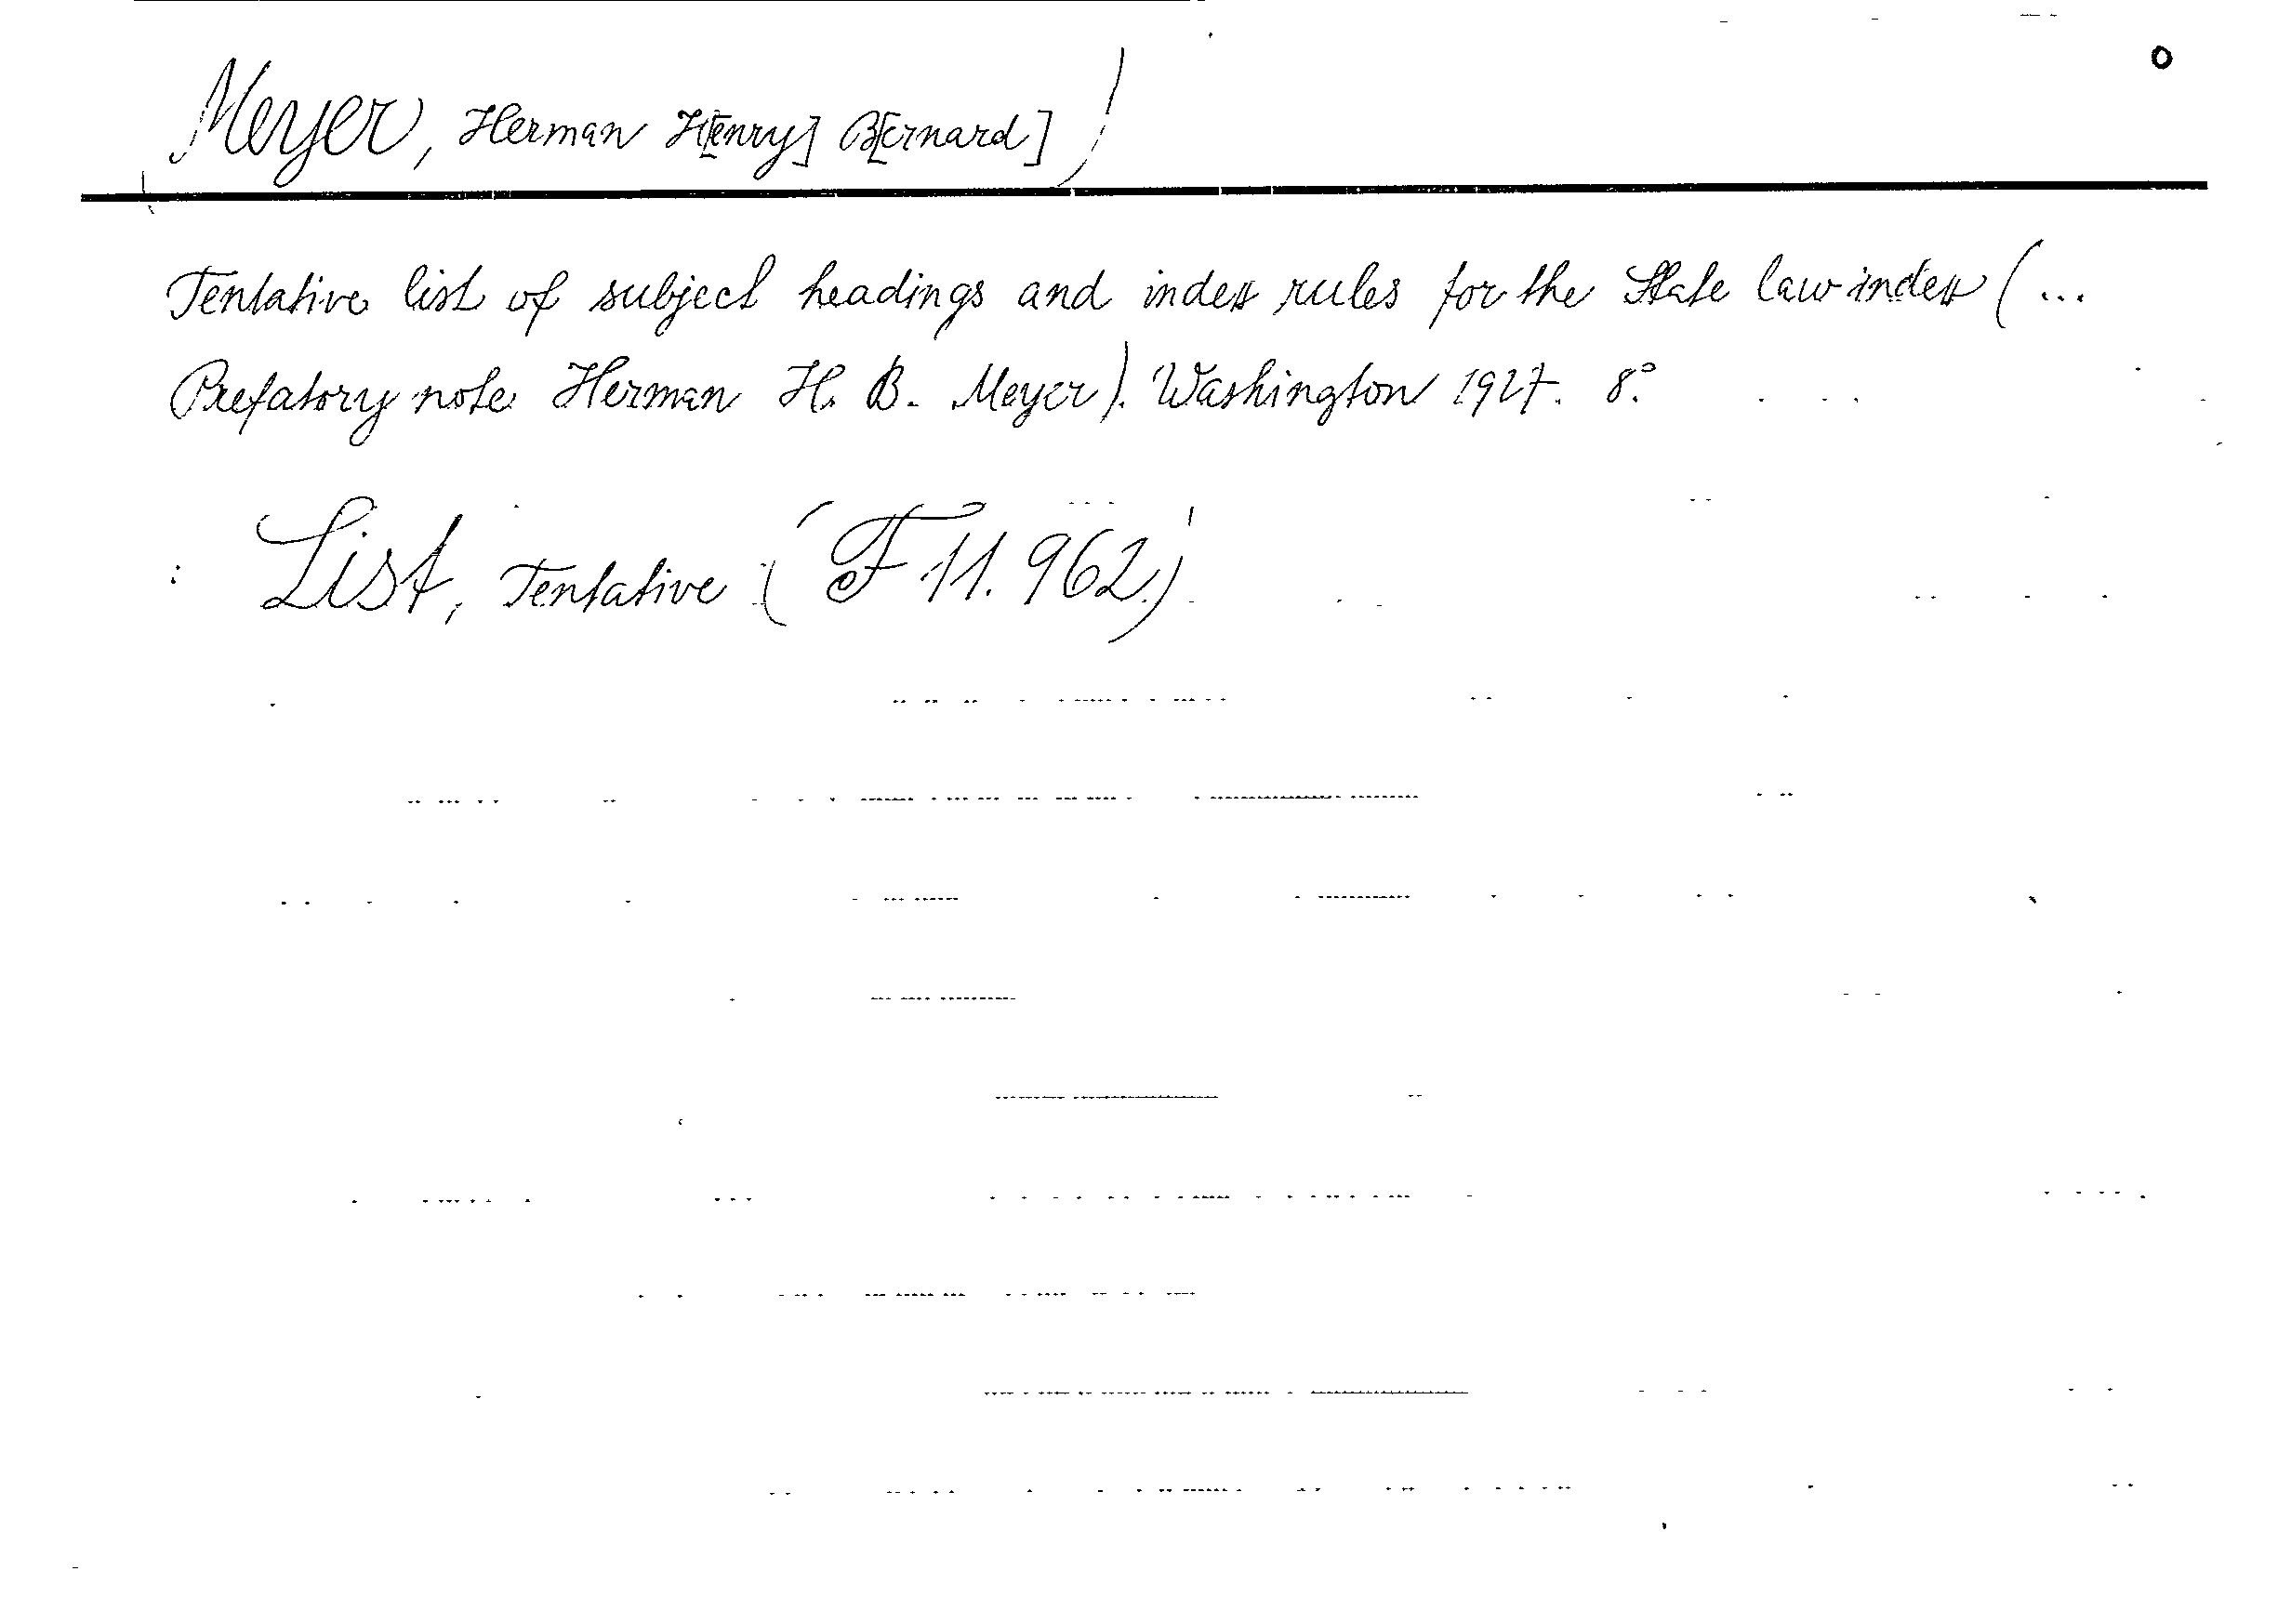 Meyer, Herman H[enry] B[ernard]
Tentative list of subject headings and index rules for the State law index (...
Prefatory note Herman H. B. Meyer). Washington 1927. 8°
: List, Tentative (F 11. 962.)